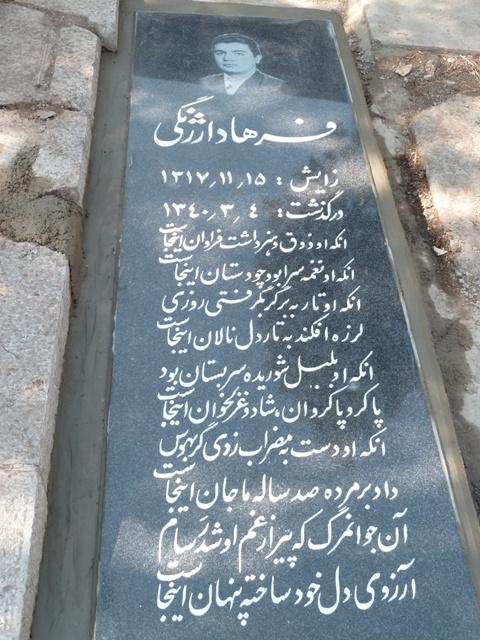 فرهاد ارژنگی
زایش : ۱۳۱۷/۱۱/۱۵
درگذشت: ۱۳۴۰/۳/۴
انکه او ذوق و هنر داشت فراوان اینجاست
انکه او نغمه سرا بود چو دستان اینجاست
انکه او تار به برگر بگرفتی روزی
لرزه افکند به تار دل نالان اینجاست
انکه او بلبل شوریده سر بستان بود
پاکرو پاکروان، شاد و غزلخوان اینجاست
انکه او دست به مضراب زدی گر به هوس
داد بر مرده صد ساله ما جان اینجاست
آن جوانمرگ که پیر از غم او شد رسام
آرزوی دل خود ساخته پنهان اینجاست